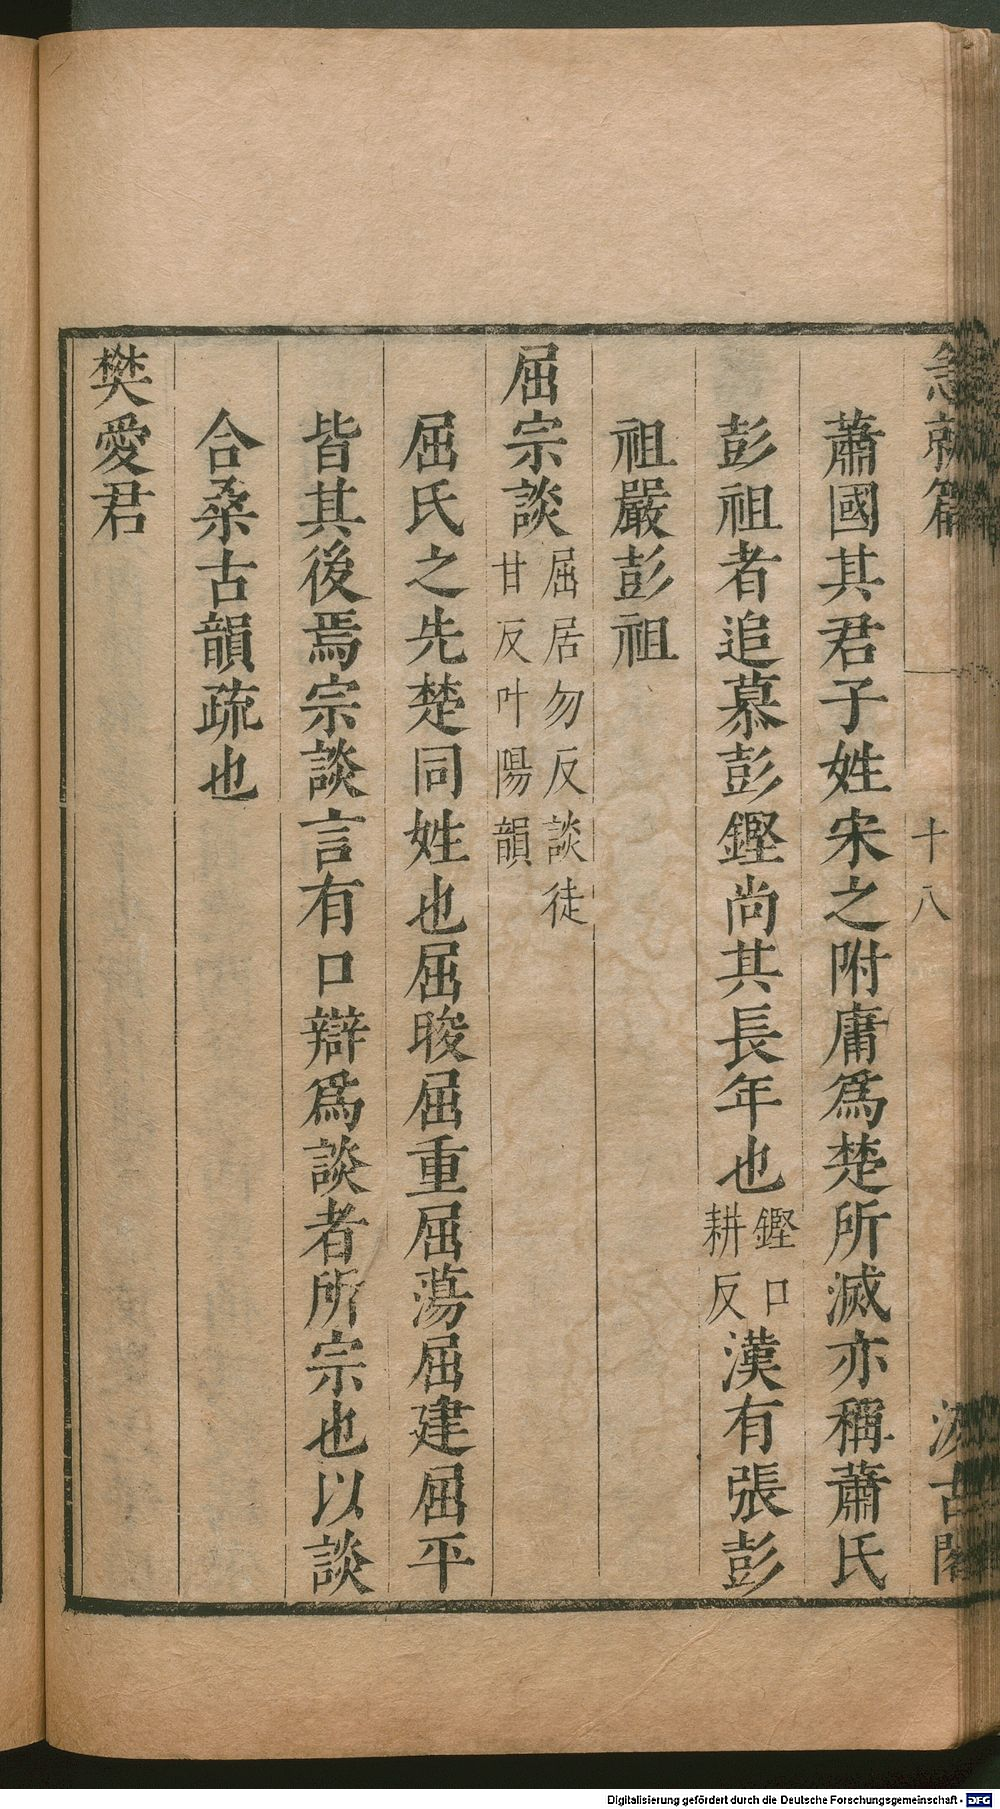 急就篇 十八 汲古閣
蕭國其君子姓宋之附庸爲楚所滅亦稱蕭氏
彭祖者追慕彭鏗尚其長年也鏗口耕反漢有張彭
祖嚴彭祖
屈宗談屈居勿反談徒甘反叶陽韻
屈氏之先楚同姓也屈晙屈重屈蕩屈建屈平
皆其後焉宗談言有口辯爲談者所宗也以談
合桑古韻疏也
樊愛君
Digitalisierung gefördert durch die Deutsche Forschungsgemeinschaft - DFG